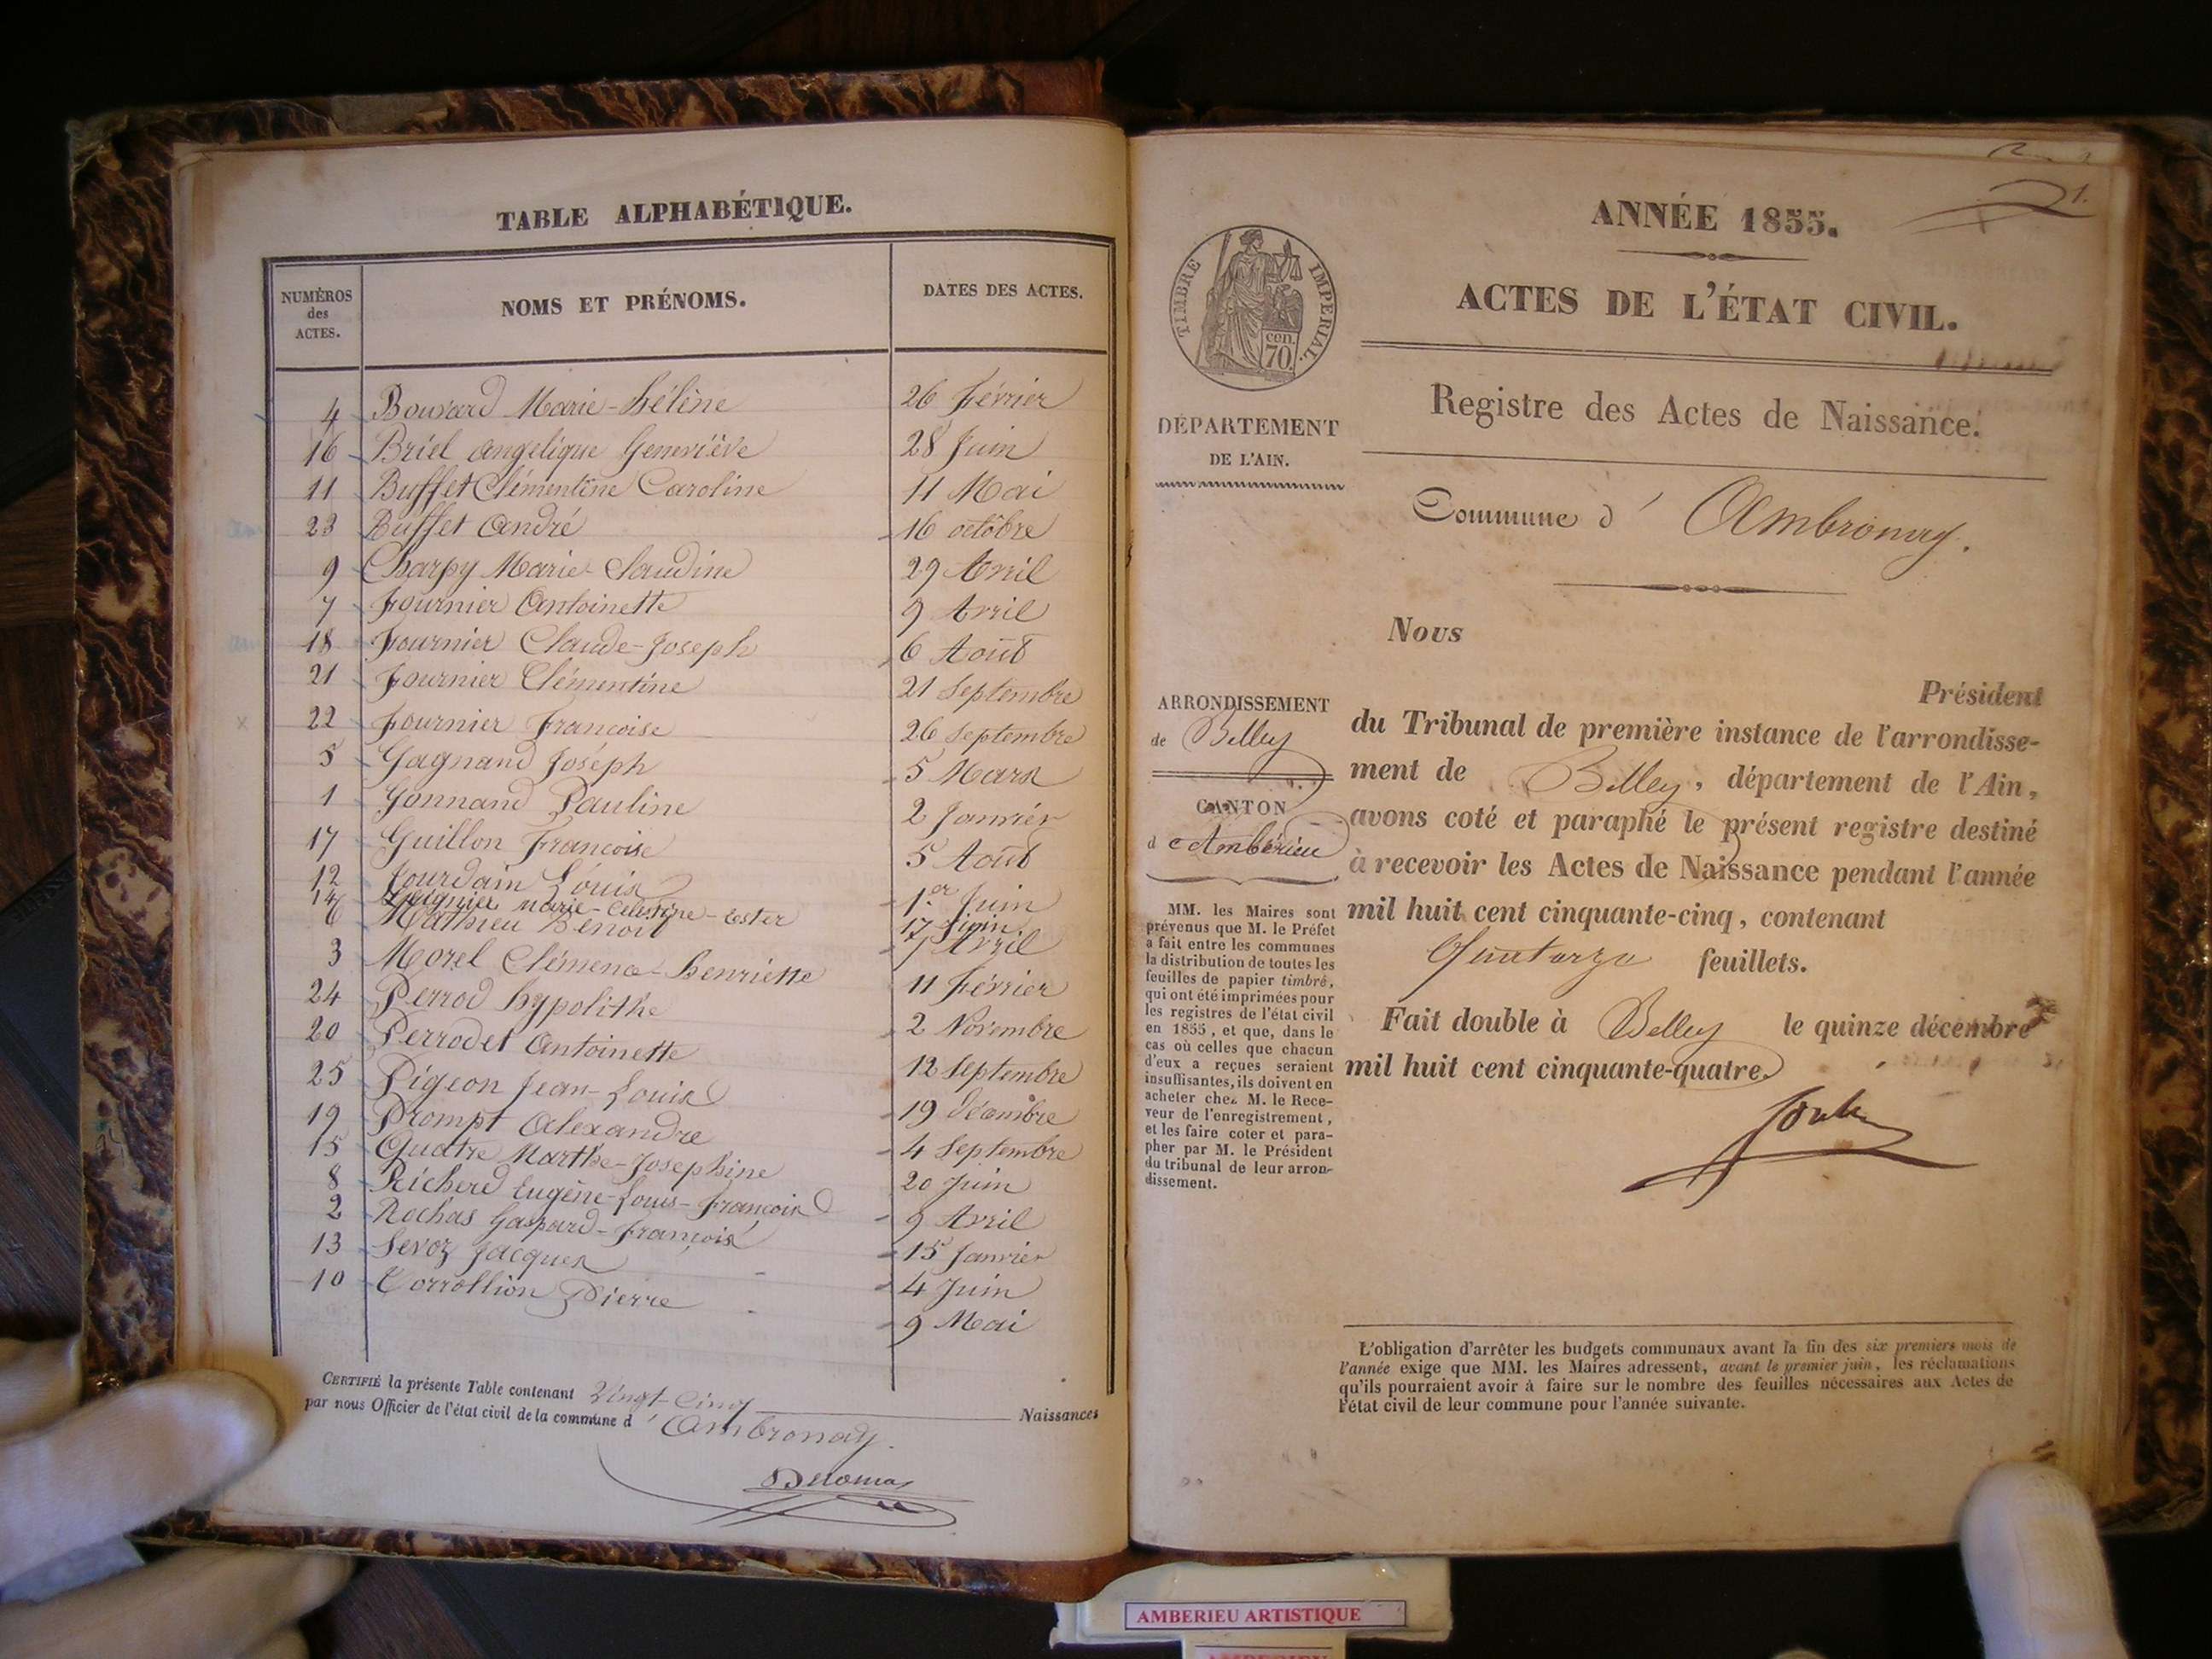 TABLE ALPHABÉTIQUE.
NUMÉROS
des
ACTES.
NOMS ET PRÉNOMS.
DATES DES ACTES.
4 Bouvard Marie-hélène 26 Février
16 Briel angelique Geneviève 28 Juin
11 Buffet Clémentine Caroline 11 Mai
23 Buffet André 16 octobre
9 Charpy Marie-Claudine 29 Avril
7 Fournier Antoinette 9 Avril
18 Fournier Claude-Joseph 6 Août
21 Fournier Clémentine 21 Septembre
22 Fournier Françoise 26 Septembre
5 Gagnand Joseph 5 Mars
1 Gonnand Pauline 2 Janvier
17 Guillon Françoise 5 Août
12 Jourdain Louis 1.er Juin
14 marie-Celestine-Ester 17 Juin
6 Mathieu Benoit 7 Avril
3 Morel Clémence-henriette 11 Février
24 Perrod hypolithe 2 Novembre
20 Perrodet Antoinette 12 Septembre
25 Pigeon Jean-Louis 19 Décembre
19 Prompt Alexandre 4 Septembre
15 Quatre Marthe-Josephine 20 Juin
8 Richerd Eugène-Louis-François 9 Avril
2 Rochas Gaspard-François 15 Janvier
13 Sevoz Jacques 4 Juin
10 Torrollion Pierre 9 Mai
CERTIFIÉ la présente Table contenant Vingt-Cinq Naissances
par nous Officier de l'état civil de la commune d' Ambronay.
1.
ANNÉE 1855.
ACTES DE L'ÉTAT CIVIL.
TIMBRE IMPÉRIAL.
cen.
70.
Registre des Actes de Naissance.
DÉPARTEMENT
DE L'AIN.
Commune d' Ambronay.
Nous
Président
ARRONDISSEMENT
de Belley
CANTON
d'Ambérieu
du Tribunal de première instance de l'arrondisse-
ment de Belley, département de l'Ain,
avons coté et paraphé le présent registre destiné
à recevoir les Actes de Naissance pendant l'année
mil huit cent cinquante-cinq, contenant
Quatorze feuillets.
Fait double à Belley le quinze décembre
mil huit cent cinquante-quatre.
MM. les Maires sont
prévenus que M. le Préfet
a fait entre les communes
la distribution de toutes les
feuilles de papier timbré,
qui ont été imprimées pour
les registres de l'état civil
en 1855, et que, dans le
cas où celles que chacun
d'eux a reçues seraient
insuffisantes, ils doivent en
acheter chez M. le Rece-
veur de l'enregistrement,
et les faire coter et para-
pher par M. le Président
du tribunal de leur arron-
dissement.
L'obligation d'arrêter les budgets communaux avant la fin des six premiers mois de
l'année exige que MM. les Maires adressent, avant le premier juin, les réclamations
qu'ils pourraient avoir à faire sur le nombre des feuilles nécessaires aux Actes de
l'état civil de leur commune pour l'année suivante.
AMBERIEU ARTISTIQUE